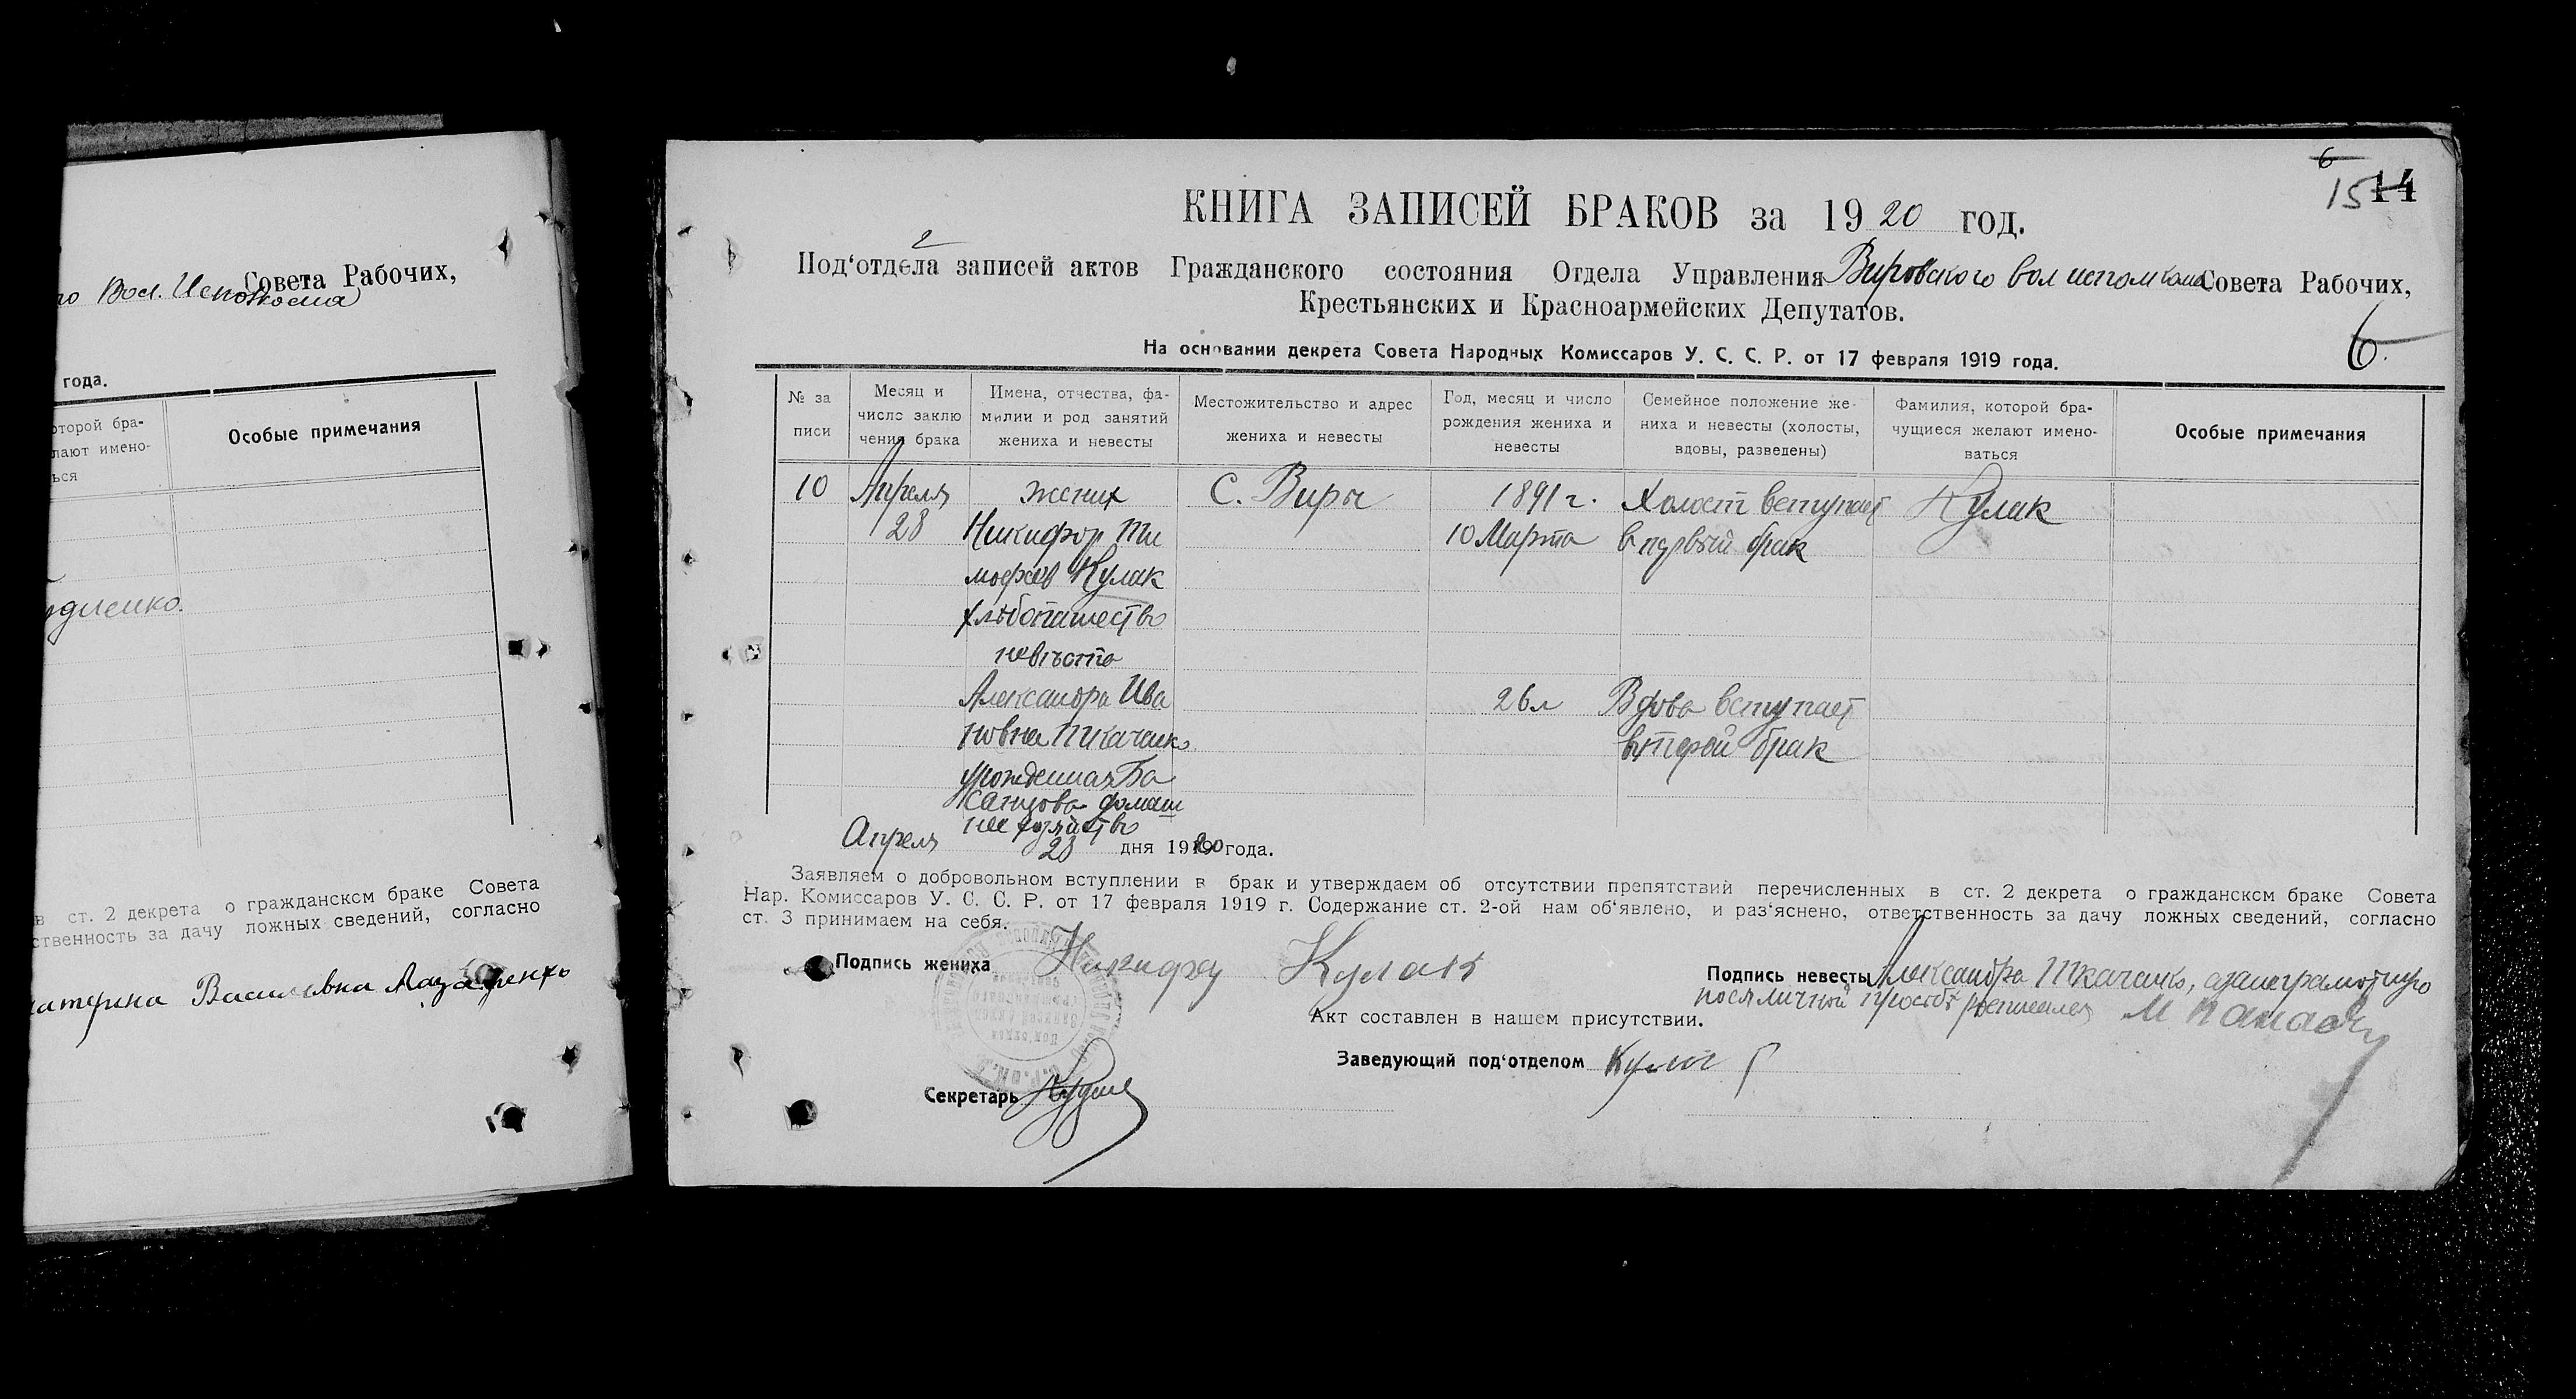 Вол. Исполкома Совета Рабочих,
года.
оторой бра-
лают имено-
ься
Особые примечания
в ст. 2 декрета о гражданском браке Совета
ственность за дачу ложных сведений, согласно
Васильевна
6
15 14
КНИГА ЗАПИСЕЙ БРАКОВ за 1920 год.
Под‘отдела записей актов Гражданского состояния Отдела Управления Вировского волисполкома Совета Рабочих,
Крестьянских и Красноармейских Депутатов.
6.
На основании декрета Совета Народных Комиссаров У. С. С. Р. от 17 февраля 1919 года.
№ за
писи
Месяц и
число заклю
чения брака
Имена, отчества, фа-
милии и род занятий
жениха и невесты
Местожительство и адрес
жениха и невесты
Год, месяц и число
рождения жениха и
невесты
Семейное положение же-
ниха и невесты (холосты,
вдовы, разведены)
Фамилия, которой бра-
чущиеся желают имено-
ваться
Особые примечания
10 Апреля жених С. Виры 1891 г. Холост вступает Кулак
28 Никифор Ти 10 Марта в первый брак
мофеев Кулак
хлѣбопашество
невѣста
Александра Ива 26 л Вдова вступает
новна Ткаченко второй брак
урожденная Ба
домаш
нее хозяйство
Апреля 28 дня 1920 года.
Заявляем о добровольном вступлении в брак и утверждаем об отсутствии препятствий перечисленных в ст. 2 декрета о гражданском браке Совета
Нар. Комиссаров У. С. С. Р. от 17 февраля 1919 г. Содержание ст. 2-ой нам об‘явлено, и раз‘яснено, ответственность за дачу ложных сведений, согласно
ст. 3 принимаем на себя.
Подпись жениха Никифор Кулак
Подпись невесты Александра Ткаченко, а за неграмотную
по ея личной просьбѣ росписался М
Акт составлен в нашем присутствии.
Заведующий под‘отделом
Секретарь